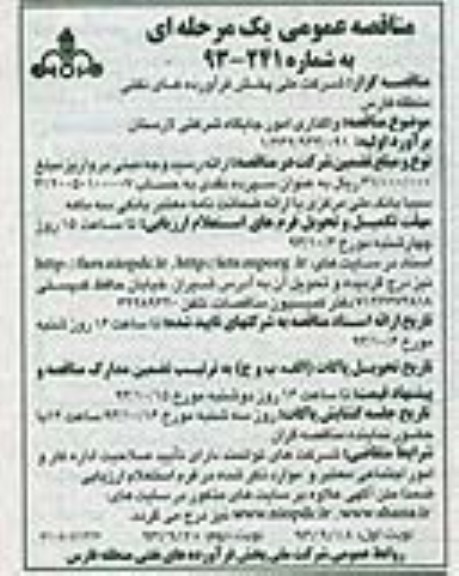 مناقصه عمومی یک مرحله ای
به شماره ۲۴۱-۹۳
مناقصه گزار: شرکت ملی پخش فرآورده های نفتی
منطقه فارس
موضوع مناقصه: واگذاری امور جایگاه شرکتی لارستان
برآورد اولیه:
نوع و مبلغ تضمین شرکت در مناقصه: ارائه رسید وجه مبنی بر واریز مبلغ
ریال به عنوان سپرده نقدی به حساب
سیبا بانک ملی مرکزی یا ارائه ضمانت نامه معتبر بانکی سه ماهه
مهلت تکمیل و تحویل فرم های استعلام ارزیابی: تا ساعت ۱۵ روز
چهارشنبه مورخ
اسناد در سایت های: http://iets.mporg.ir , http://fars.niopdc.ir
نیز درج گردیده و تحویل آن به آدرس شیراز، خیابان حافظ
دفتر کمیسیون مناقصات تلفن
تاریخ ارائه اسناد مناقصه به شرکتهای تایید شده: تا ساعت ۱۶ روز شنبه
مورخ
تاریخ تحویل پاکات (الف، ب و ج) به ترتیب تضمین مدارک مناقصه و
پیشنهاد قیمت: تا ساعت ۱۶ روز دوشنبه مورخ ۹۳/۱۰/۱۵
تاریخ جلسه گشایش پاکات: روز سه شنبه مورخ ۹۳/۱۰/۱۶ ساعت
حضور نماینده مناقصه گران
شرایط متقاضی: شرکت های توانمند دارای تأیید صلاحیت اداره کار و
امور اجتماعی معتبر و موارد ذکر شده در فرم استعلام ارزیابی
ضمنا متن آگهی علاوه بر سایت های مذکور در سایت های:
www.shana.ir , www.niopdc.ir نیز درج می گردد.
نوبت اول: ۹۳/۹/۱۸ نوبت دوم:
روابط عمومی شرکت ملی پخش فرآورده های نفتی منطقه فارس